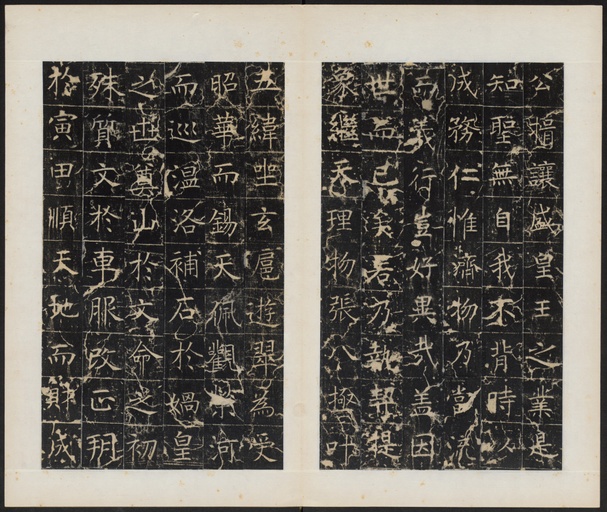 公揖讓盛皇王之業是
知聖無自我不背時以
成務仁惟濟物乃當流
而義行豈好異哉蓋因
世而已矣若乃執契提
象繼天理物張八極叶
五緯坐玄扈遊翠為受
昭華而錫天佩觀榮河
而巡溫洛補石於媧皇
之世奠山於文命之初
殊質文於車服改正朔
於寅田順天地而財成